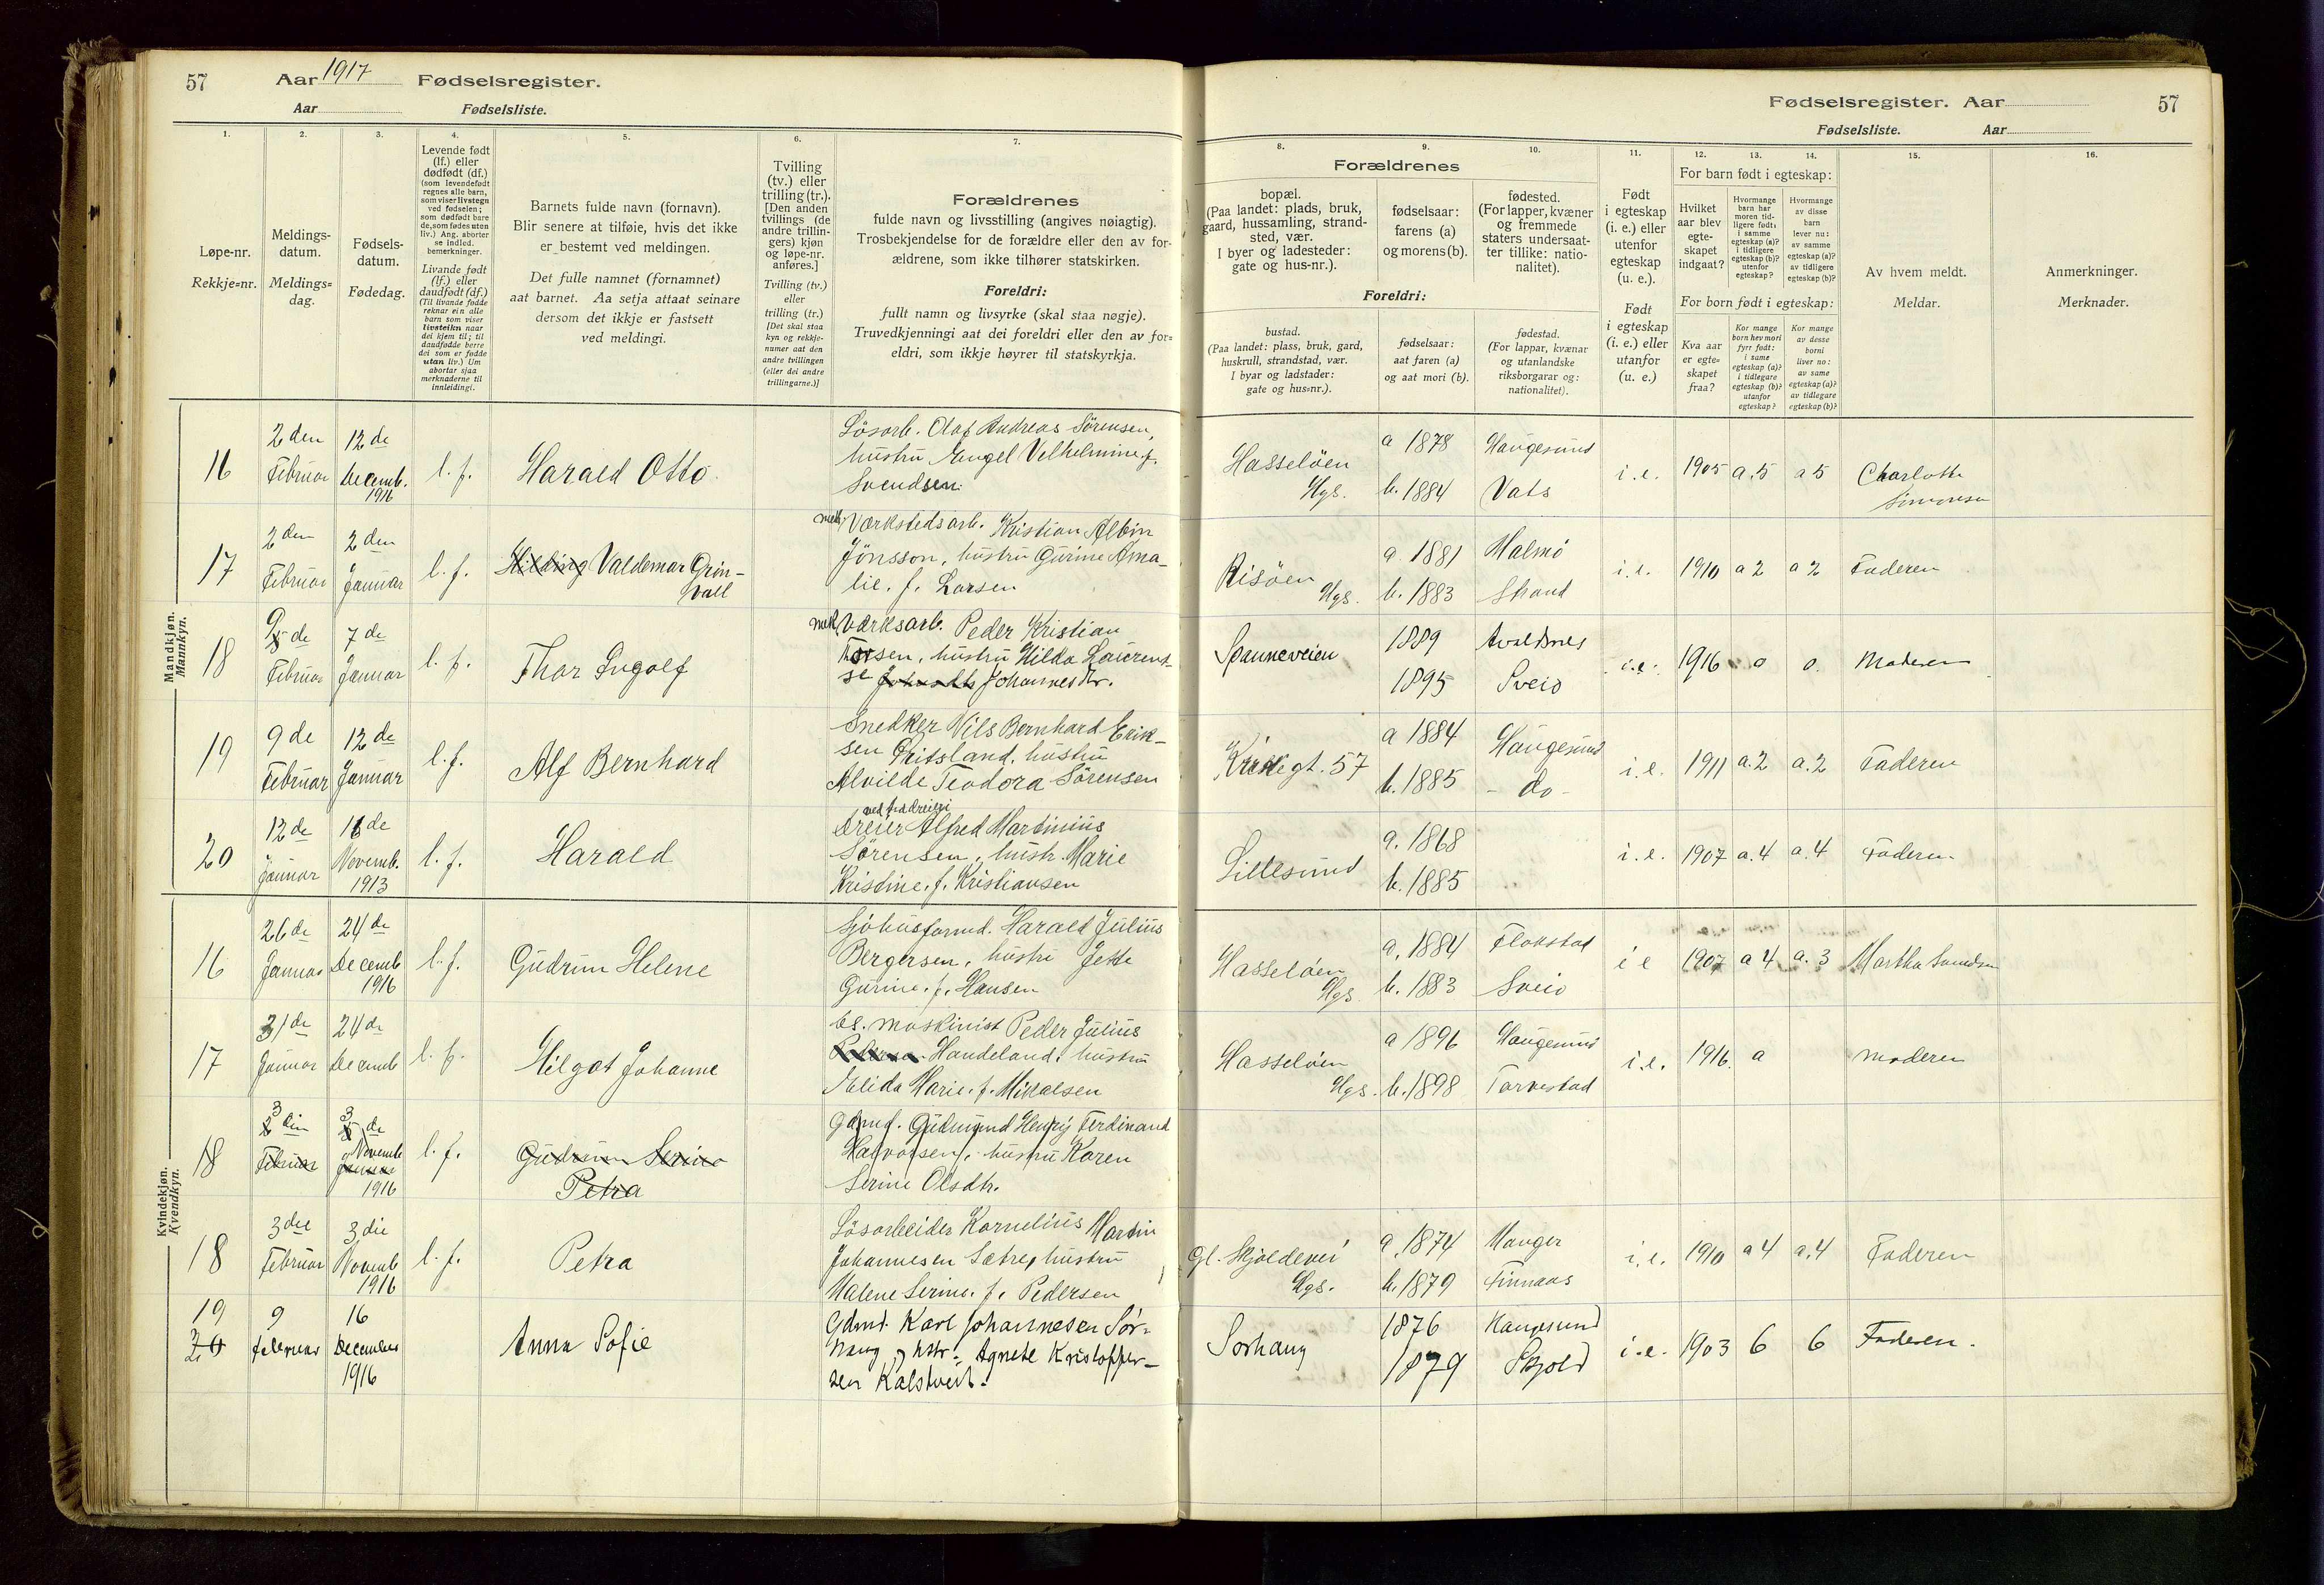 57
Aar 1917
Fødselsregister.
Aar
Fødselsliste.
1.
Løpe-nr.
Rekkje=nr.
2.
Meldings-
datum.
Meldings=
dag.
3.
Fødsels-
datum.
Fødedag.
4.
Levende født
(lf.) eller
dødfødt (df.)
(som levendefødt
regnes alle barn,
som viser livstegn
ved fødselen;
som dødfødt bare
de, som fødes uten
liv.) Ang. aborter
se indled.
bemerkninger.
Livande født
(lf.) eller
daudfødt (df.)
(Til livande fødde
reknar ein alle
barn som viser
livsteikn naar
dei kjem til; til
daudfødde berre
dei som er fødde
utan liv.) Um
abortar sjaa
merknaderne til
innleidingi.
5.
Barnets fulde navn (fornavn).
Blir senere at tilføie, hvis det ikke
er bestemt ved meldingen.
Det fulle namnet (fornamnet)
aat barnet. Aa setja attaat seinare
dersom det ikkje er fastsett
ved meldingi.
6.
Tvilling
(tv.) eller
trilling (tr.).
[Den anden
tvillings (de
andre trillin-
gers) kjøn
og løpe-nr.
anføres.]
Tvilling (tv.)
eller
trilling (tr.)
[Det skal staa
kyn og rekkje-
numer aat den
andre tvillingen
(eller dei andre
trillingarne.)]
7.
Forældrenes
fulde navn og livsstilling (angives nøiagtig).
Trosbekjendelse for de forældre eller den av for-
ældrene, som ikke tilhører statskirken.
Foreldri:
fullt namn og livsyrke (skal staa nøgje).
Truvedkjenningi aat dei foreldri eller den av for=
eldri, som ikkje høyrer til statskyrkja.
Mandkjøn.
Mannkyn.
16
2den
Februar
12de
Decemb.
1916
l. f.
Harald Otto.
Løsarb. Olaf Andreas Sørensen,
hustru Engel Velhelmine f.
Svendsen.
17
2den
Februar
2den
Januar
l. f.
Hilding Valdemar Grön-
vall
mek. Værkstedsarb. Kristian Albin
Jönsson, hustru Gurine Ama-
lie. f. Larsen
18
9de
Februar
7de
Januar
l. f.
Thor Ingolf
mek. Værksarb. Peder Kristian
hustru Hilda Laurent-
se Johannesdtr.
19
9de
Februar
12de
Januar
l. f.
Alf Bernhard
Snedker Nils Bernhard Erik-
sen hustru
Alvilde Teodora Sörensen
20
12de
Januar
de
Novemb.
1913
l. f.
Harald
Dreier Alfred Martinius
Sörensen, hustr. Marie
Kristine. f. Kristiansen
Kvindekjøn.
Kvendkyn.
16
26de
Januar
24de
Decemb
1916
l. f.
Gudrun Helene
Sjöhusformd. Harald Julius
Bergersen, hustru Jette
Gurine. f. Hansen
17
31de
Januar
24de
Decemb
l. f.
Hilgot Johanne
bs. maskinist Peder Julius
Handeland, hustru
Elida Marie. f. Mikalsen
18
3din
Februar
3de
Novemb
Januar
1916
l. f.
Gudrun Serine
Petra
Gdmd. Gudmund Henry Ferdinand
Halvorsen, hustru Karen
Serine Olsdtr.
18
3die
Februar
3die
Novemb
1916
l. f.
Petra
Løsarbeider Kornelius Martin
Johannesen Sætre, hustru
Malene Serine. f. Pedersen
19
20
9
februar
16
December
1916
Anna Sofie
Gdmd. Karl Johannesen Sør-
haug, og hstr. Agnete Kristoffer-
sen Kalstveit.
Fødselsregister. Aar
57
Fødselsliste. Aar
8.
Forældrenes
bopæl.
(Paa landet: plads, bruk,
gaard, hussamling, strand-
sted, vær.
I byer og ladesteder:
gate og hus-nr.).
Foreldri:
bustad.
(Paa landet: plass, bruk, gard,
huskrull, strandstad, vær.
I byar og ladstader:
gate og hus=nr.).
9.
fødselsaar:
farens (a)
og morens (b).
fødselsaar:
aat faren (a)
og aat mori (b).
10.
fødested.
(For lapper, kvæner
og fremmede
staters undersaat-
ter tillike: natio-
nalitet).
fødestad.
(For lappar, kvænar
og utanlandske
riksborgarar og:
nationalitet).
11.
Født
i egteskap
(i. e.) eller
utenfor
egteskap
(u. e.).
Født
i egteskap
(i. e.) eller
utanfor
(u. e.)
12.
13.
14.
For barn født i egteskap:
Hvilket
aar blev
egte-
skapet
indgaat?
Hvormange
barn har
moren tid-
ligere født:
i samme
egteskap (a)?
i tidligere
egteskap (b)?
utenfor
egteskap?
Hvormange
av disse
barn
lever nu:
av samme
egteskap (a)?
av tidligere
egteskap (b)?
For born født i egteskap:
Kva aar
er egte=
skapet
fraa?
Kor mange
born hev mori
fyrr født:
i same
egteskap (a)?
i tidlegare
egteskap (b)?
utanfor
egteskap?
Kor mange
av desse
borni
liver no:
av same
egteskap (a)?
av tidlegare
egteskap (b)?
15.
Av hvem meldt.
Meldar.
16.
Anmerkninger.
Merknader.
Hasseløen
Hgs.
a 1878
b. 1884
Haugesund
Vats
i. e.
1905
a. 5
a 5
Charlotte
Simonsen
Risöen
Hgs.
a. 1881
b. 1883
Malmö
Strand
i. e.
1910
a 2
a 2
Faderen
Spanneveien
1889
1895
Avaldsnes
Sveio
i. e.
1916
0
0.
Moderen
Kirkegt. 57
a 1884
b. 1885
Haugesund
- do -
i. e.
1911
a. 2
a. 2
Faderen
Lillesund
a. 1868
b. 1885
i. e.
1907
a. 4
a. 4
Faderen
Hasselöen
Hgs.
a. 1884
b. 1883
Sveio
i e
1907
a 4
a. 3
Martha
Hasselöen
Hgs.
a 1896
b. 1898
Haugesund
Torvestad
i. e.
1916.
a
moderen
Gl. Skjoldevei
Hgs.
a. 1874
b. 1879
Manger
Finnaas
i. e.
1910
a 4
a. 4
Faderen
Sørhaug
1876
1879
Haugesund
Skjold
i. e.
1903
6
6
Faderen.